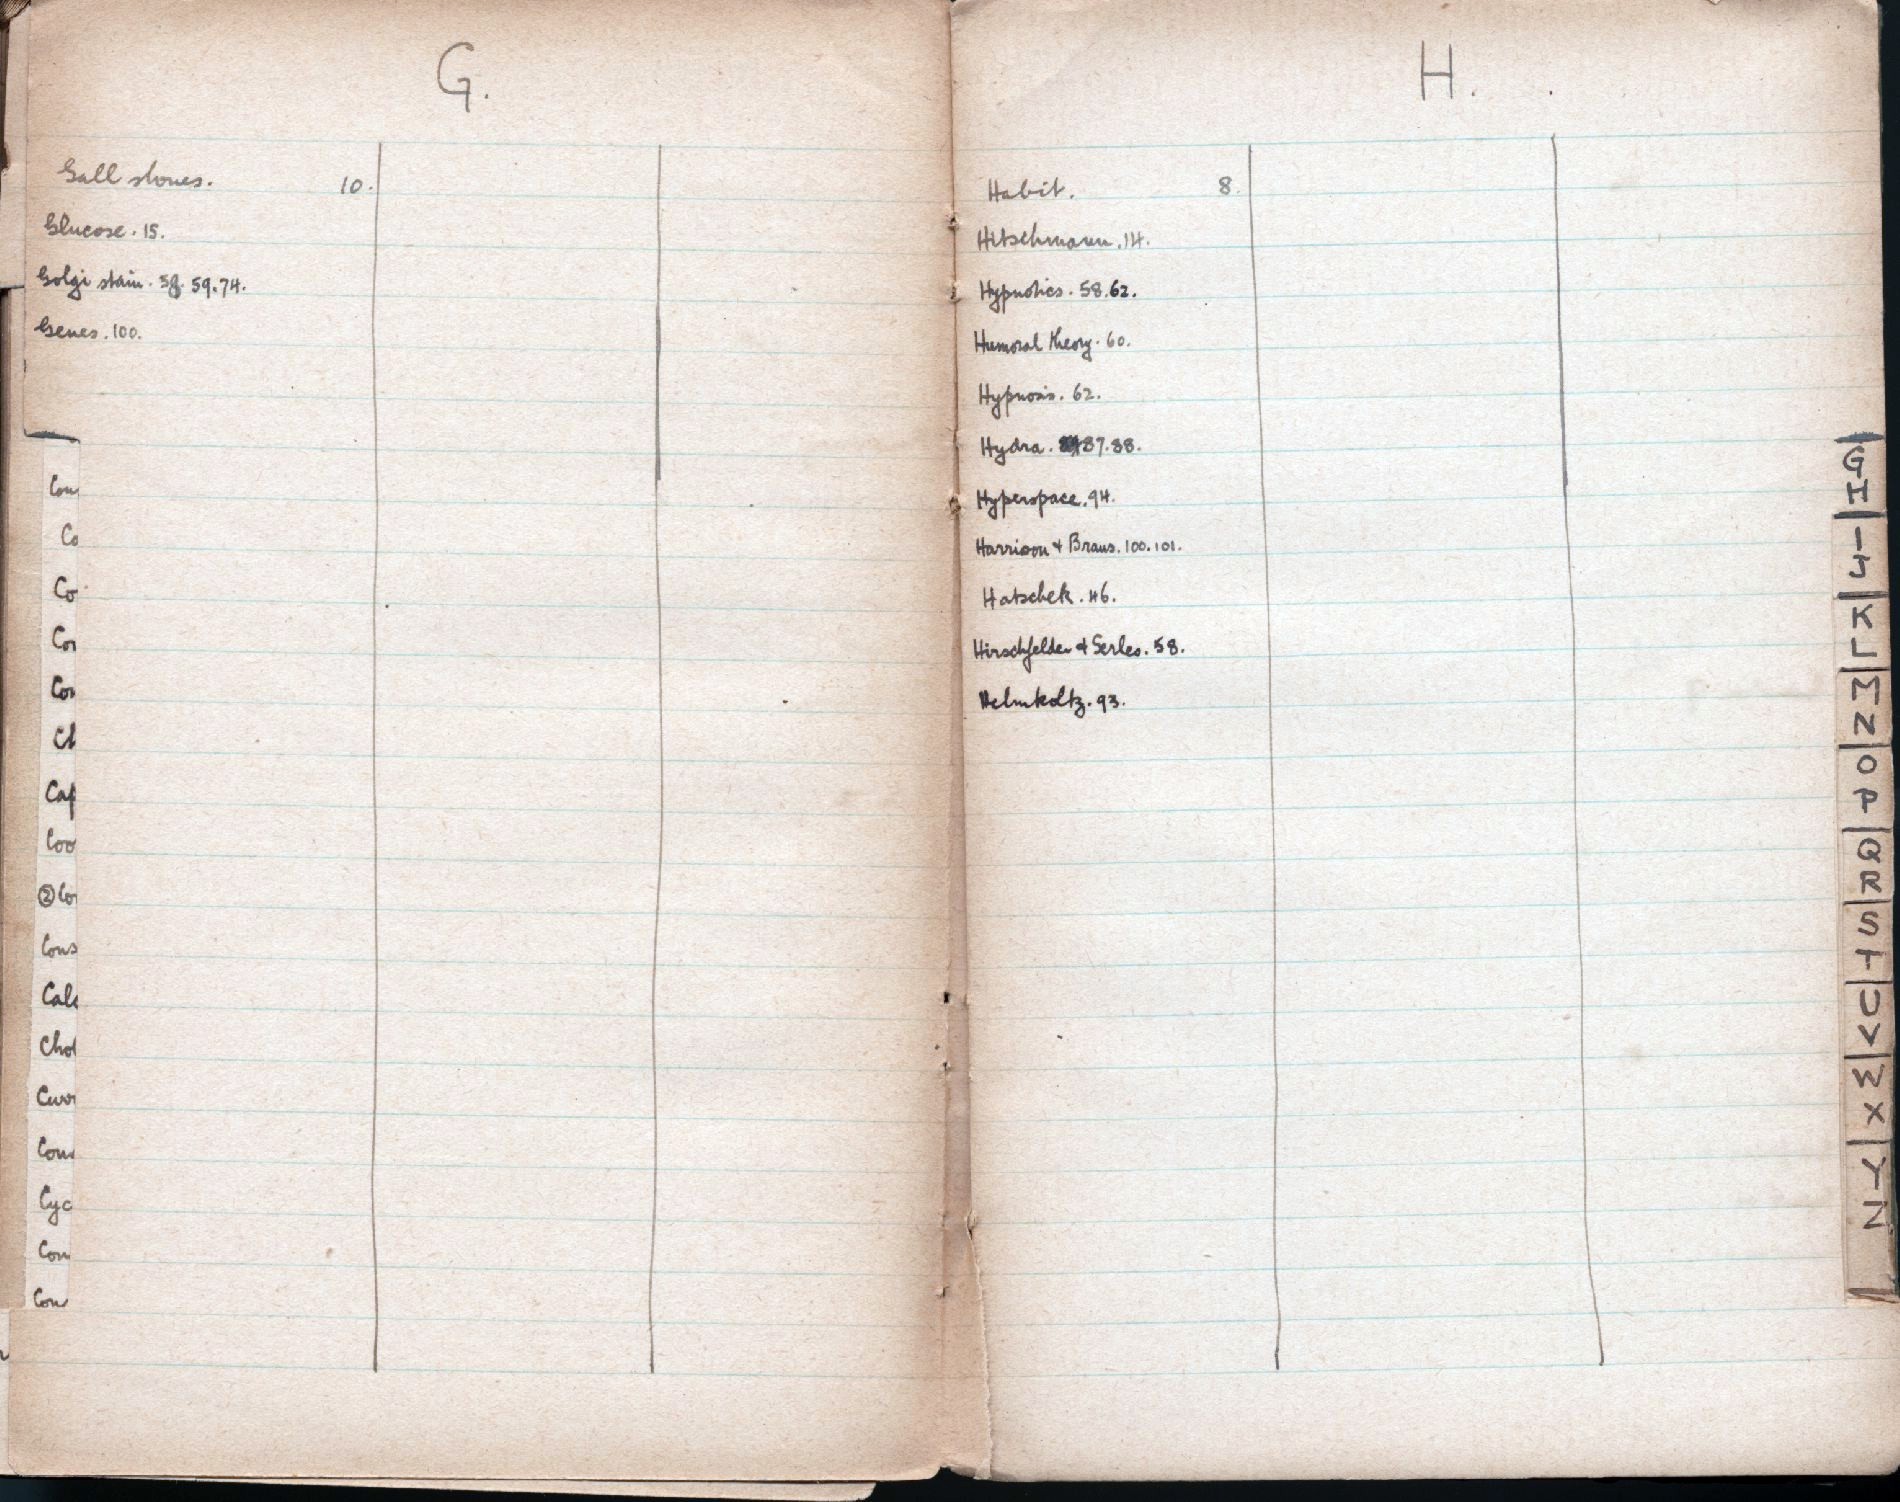 G.
Gall stones. 10.
Glucose. 15.
Golgi stain. 58. 59. 74.
Genes. 100.
Con
Co
Co
Con
Con
Ch
Cap
Coo
② Con
Cons
Calc
Chol
Curr
Conc
Cyc
Con
Con
H.
Habit. 8.
Hitschmann. 14.
Hypnotics. 58. 62.
Humoral theory. 60.
Hypnosis. 62.
Hydra. 87. 88.
Hyperspace. 94.
Harrison & Braus. 100. 101.
Hatschek. 46.
Hirschfelder & Serles. 58.
Helmholtz. 93.
G
H
I
J
K
L
M
N
O
P
Q
R
S
T
U
V
W
X
Y
Z